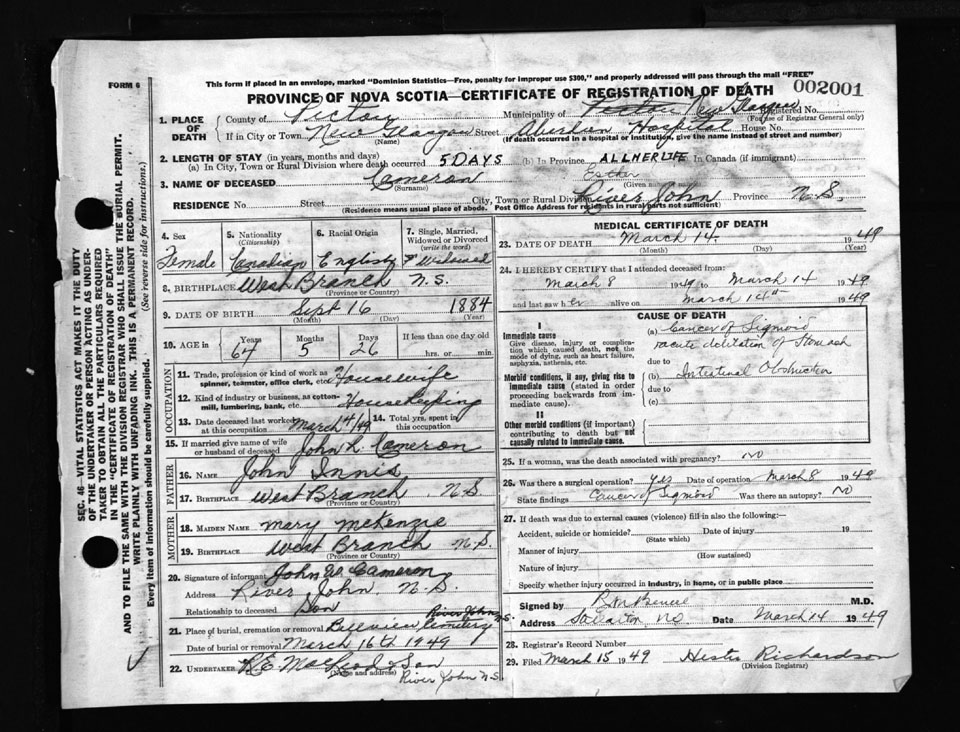 FORM 6
This form if placed in an envelope, marked "Dominion Statistics—Free, penalty for improper use $300," and properly addressed will pass through the mail "FREE"
PROVINCE OF NOVA SCOTIA—CERTIFICATE OF REGISTRATION OF DEATH
002001
1. PLACE OF DEATH
County of Pictou Municipality of Pictou New Glasgow Registered No.
(For use of Registrar General only)
If in City or Town New Glasgow Street Aberdeen Hospital House No.
(Name) (If death occurred in a hospital or institution, give the name instead of street and number)
2. LENGTH OF STAY (in years, months and days)
(a) In City, Town or Rural Division where death occurred 5 DAYS (b) In Province ALL HER LIFE In Canada (if immigrant)
3. NAME OF DECEASED Cameron Esther
(Surname) (Given names)
RESIDENCE No. Street City, Town or Rural Division River John Province N.S.
(Residence means usual place of abode. Post Office Address for residents in rural parts not sufficient)
4. Sex Female
5. Nationality (Citizenship) Canadian
6. Racial Origin English
7. Single, Married, Widowed or Divorced (write the word) Widowed
8. BIRTHPLACE West Branch N.S.
(Province or Country)
9. DATE OF BIRTH Sept 16 1884
(Month) (Day) (Year)
10. AGE in Years 64 Months 5 Days 26 If less than one day old hrs. or min.
OCCUPATION
11. Trade, profession or kind of work as spinner, teamster, office clerk, etc. Housewife
12. Kind of industry or business, as cotton-mill, lumbering, bank, etc. Housekeeping
13. Date deceased last worked at this occupation March 4/49
14. Total yrs. spent in this occupation
15. If married give name of wife or husband of deceased John R. Cameron
FATHER
16. Name John Innis
17. Birthplace West Branch N.S.
(Province or Country)
MOTHER
18. Maiden Name Mary McKenzie
19. Birthplace West Branch N.S.
(Province or Country)
20. Signature of informant John W. Cameron
Address River John, N.S.
Relationship to deceased Son
21. Place of burial, cremation or removal Bellview Cemetery River John N.S.
Date of burial or removal March 16th 1949
22. UNDERTAKER R.E. MacLeod & Son
(Name and address) River John N.S.
MEDICAL CERTIFICATE OF DEATH
23. DATE OF DEATH March 14. 1949
(Month) (Day) (Year)
24. I HEREBY CERTIFY that I attended deceased from:
March 8 1949 to March 14 1949
and last saw her alive on March 14th 1949
CAUSE OF DEATH
I
Immediate cause
Give disease, injury or complication which caused death, not the mode of dying, such as heart failure, asphyxia, asthenia, etc.
(a) Cancer of Sigmoid
acute dilitation of Stomach
due to
Morbid conditions, if any, giving rise to immediate cause (stated in order proceeding backwards from immediate cause).
(b) Intestinal Obstruction
due to
(c)
II
Other morbid conditions (if important) contributing to death but not causally related to immediate cause.
25. If a woman, was the death associated with pregnancy? no
26. Was there a surgical operation? yes Date of operation March 8 1949
State findings Cancer of Sigmoid Was there an autopsy? no
27. If death was due to external causes (violence) fill in also the following:—
Accident, suicide or homicide? Date of injury 19
(State which)
Manner of injury
(How sustained)
Nature of injury
Specify whether injury occurred in industry, in home, or in public place
Signed by M.D.
Address Date March 14 1949
28. Registrar's Record Number
29. Filed March 15 1949 Hester Richardson
(Division Registrar)
SEC. 46—VITAL STATISTICS ACT MAKES IT THE DUTY
OF THE UNDERTAKER OR PERSON ACTING AS UNDER-
TAKER TO OBTAIN ALL THE PARTICULARS REQUIRED
IN THE "CERTIFICATE OF REGISTRATION OF DEATH"
AND TO FILE THE SAME WITH THE DIVISION REGISTRAR WHO SHALL ISSUE THE BURIAL PERMIT.
WRITE PLAINLY WITH UNFADING INK. THIS IS A PERMANENT RECORD.
Every item of information should be carefully supplied. (See reverse side for instructions.)